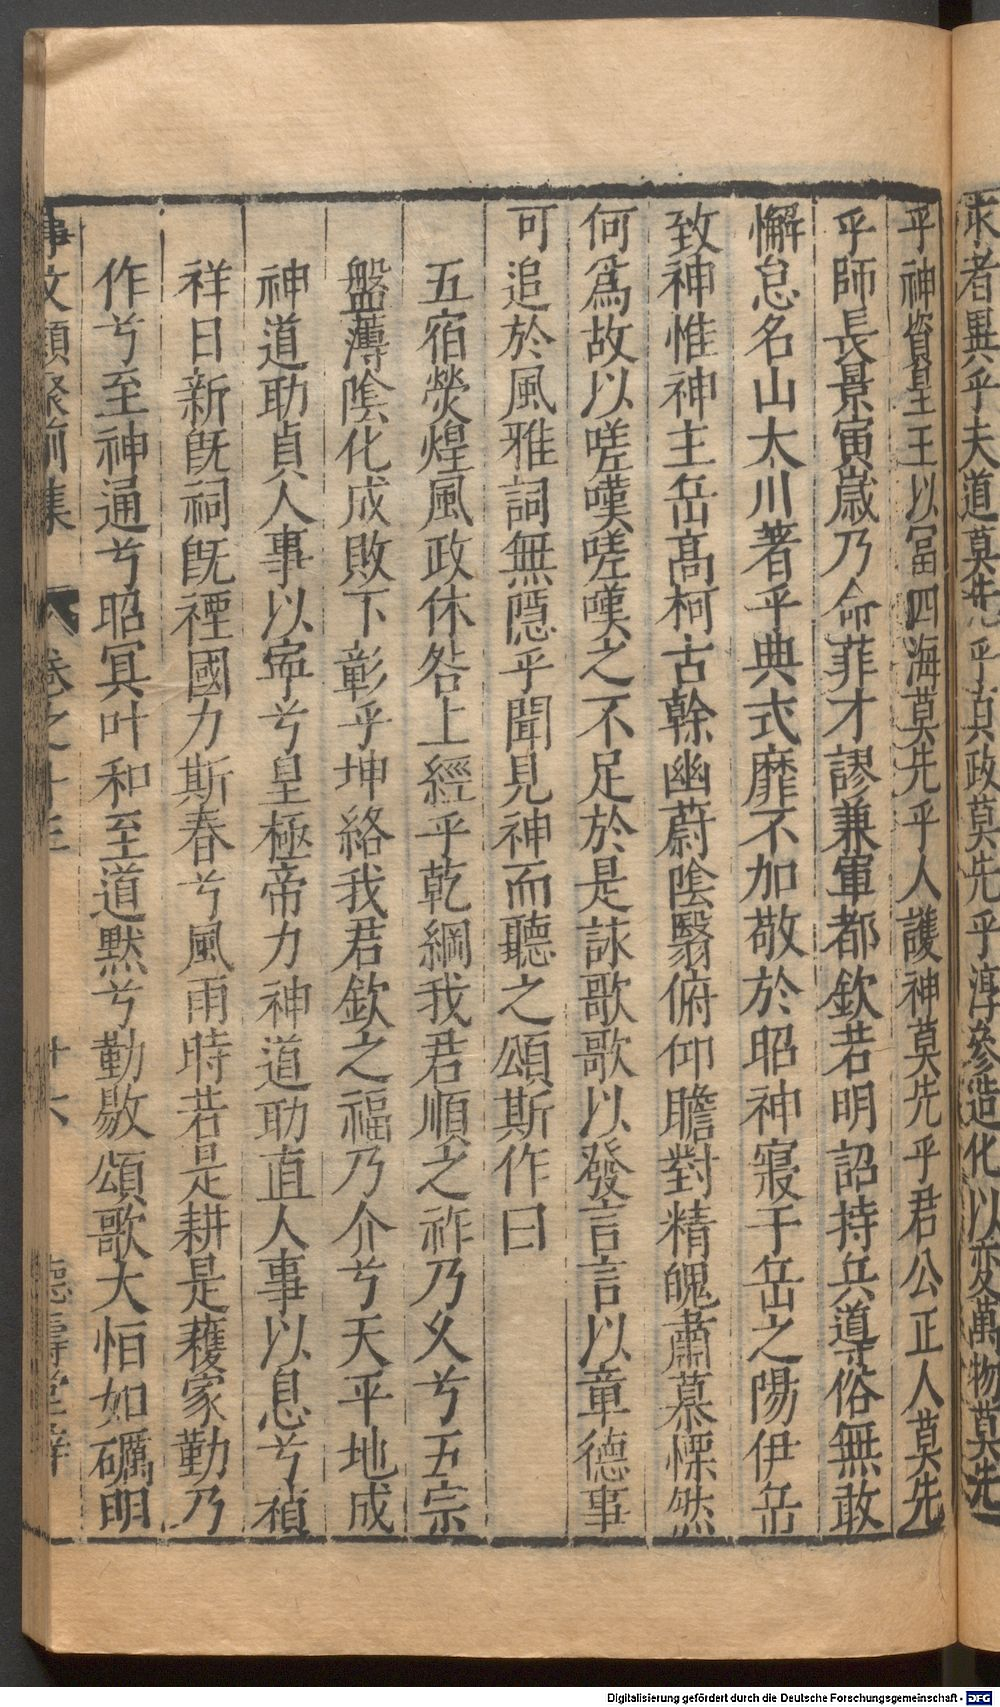 求者異乎夫道莫先乎貞政莫先乎淳參造化以変萬物莫先
乎神資皇王以冨四海莫先乎人護神莫先乎君公正人莫先
乎師長景寅歲乃命菲才謬兼軍都欽若明詔持兵導俗無敢
懈怠名山大川著乎典式靡不加敬於昭神寢于岳之陽伊岳
致神惟神主岳高柯古榦幽蔚陰翳俯仰瞻對精魄肅慕慄然
何爲故以嗟嘆嗟嘆之不足於是詠歌歌以發言言以章德事
可追於風雅詞無隱乎聞見神而聽之頌斯作曰
五宿熒煌風政休咎上經乎乾綱我君順之祚乃乂兮五宗
盤薄陰化成敗下彰乎坤絡我君欽之福乃介兮天平地成
神道助貞人事以寧兮皇極帝力神道助直人事以息兮禎
祥日新旣祠旣禋國力斯春兮風雨時若是耕是穫家勤乃
作兮至神通兮昭冥叶和至道黙兮勤敭頌歌大怕如礪明
事文類聚前集 卷之十三 廿六 德壽堂梓
Digitalisierung gefördert durch die Deutsche Forschungsgemeinschaft - DFG